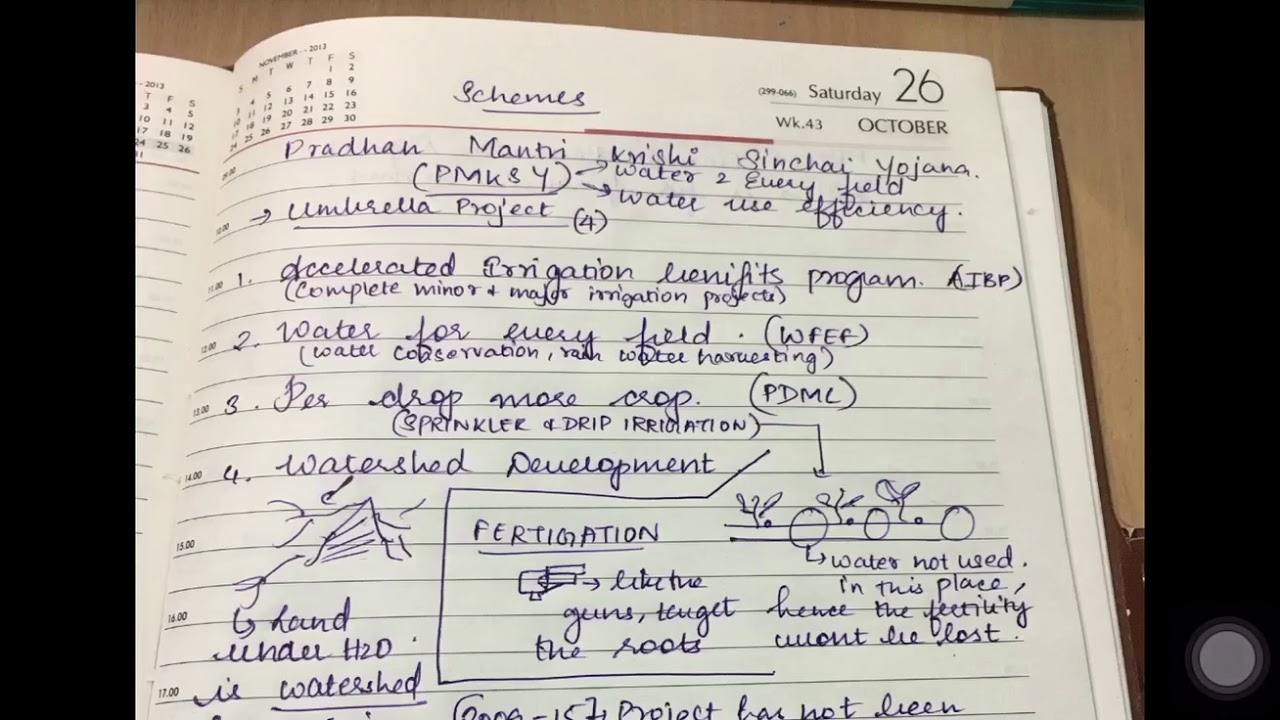 NOVEMBER - - 2013
S M T W T F S
1 2
3 4 5 6 7 8 9
10 11 12 13 14 15 16
17 18 19 20 21 22 23
24 25 26 27 28 29 30
- 2013
T F S
3 4 5
10 11 12
17 18 19
24 25 26
31
(299-066) Saturday 26
Wk.43 OCTOBER
Schemes
Pradhan Mantri Krishi Sinchai Yojana.
(PMKSY) → Water 2 Every field
→ Water use efficiency.
→ Umbrella Project (4)
1. Accelerated Irrigation benifits program. (AIBP)
(Complete minor & major irrigation projects)
2. Water for every field. (WFEF)
(Water conservation, rain water harvesting)
3. Per drop more crop. (PDMC)
(SPRINKLER & DRIP IRRIGATION)
4. Watershed Development
FERTIGATION
→ like the
guns, target
the roots
↳ water not used.
in this place,
hence the fertility
wont be lost.
↳ Land
under H2O
is watershed
(2009-15), Project has not been
09.00
10.00
11.00
12.00
13.00
14.00
15.00
16.00
17.00